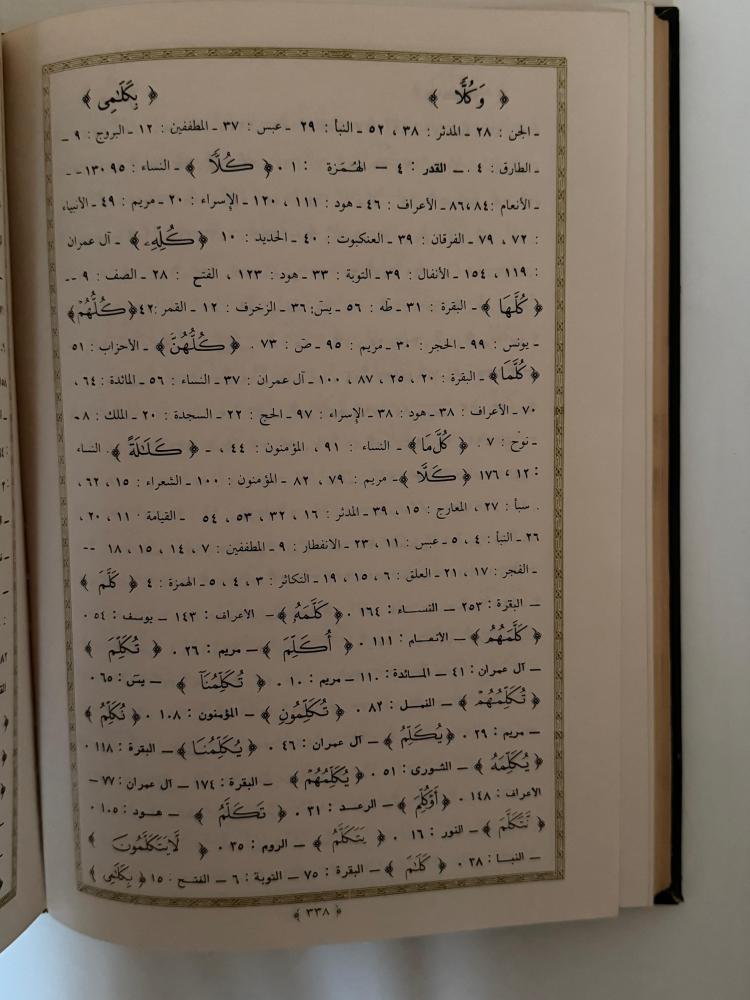 ﴿ وَكُلًّا ﴾ ﴿ بِكَلَـٰمِى ﴾
ـ الجن : ٢٨ ـ المدثر : ٣٨ ، ٥٢ ـ النبأ : ٢٩ ـ عبس : ٣٧ ـ المطففين : ١٢ ـ البروج : ٩ ـ
ـ الطارق : ٤ . ــ القدر : ٤ ــ الهُمَزة : ١ . ﴿ كُلًّا ﴾ ـ النساء : ٩٥ ، ١٣٠ ـ ـ
ـ الأنعام : ٨٤ ، ٨٦ ـ الأعراف : ٤٦ ـ هود : ١١١ ، ١٢٠ ـ الإسراء : ٢٠ ـ مريم : ٤٩ ـ الأنبياء
: ٧٢ ، ٧٩ ـ الفرقان : ٣٩ ـ العنكبوت : ٤٠ ـ الحديد : ١٠ ﴿ كُلِّهِۦ ﴾ ـ آل عمران
: ١١٩ ، ١٥٤ ـ الأنفال : ٣٩ ـ التوبة : ٣٣ ـ هود : ١٢٣ ، الفتح : ٢٨ ـ الصف : ٩ ــ
﴿ كُلَّهَا ﴾ ـ البقرة : ٣١ ـ طٰه : ٥٦ ـ يسٓ : ٣٦ ـ الزخرف : ١٢ ـ القمر : ٤٢ ﴿ كُلُّهُمْ ﴾
ـ يونس : ٩٩ ـ الحجر : ٣٠ ـ مريم : ٩٥ ـ صٓ : ٧٣ . ﴿ كُلُّهُنَّ ﴾ ـ الأحزاب : ٥١
﴿ كُلَّمَا ﴾ ـ البقرة : ٢٠ ، ٢٥ ، ٨٧ ، ١٠٠ ـ آل عمران : ٣٧ ـ النساء : ٥٦ ـ المائدة : ٦٤ ،
٧٠ ـ الأعراف : ٣٨ ـ هود : ٣٨ ـ الإسراء : ٩٧ ـ الحج : ٢٢ ـ السجدة : ٢٠ ـ الملك : ٨ ـ
ـ نوح : ٧ . ﴿ كُلَّ مَا ﴾ ـ النساء : ٩١ ، المؤمنون : ٤٤ ، ـ ﴿ كَلَـٰلَةً ﴾ . النساء
: ١٢ ، ١٧٦ ﴿ كَلَّا ﴾ ـ مريم : ٧٩ ، ٨٢ ـ المؤمنون : ١٠٠ ـ الشعراء : ١٥ ، ٦٢ ،
. سبأ : ٢٧ ، المعارج : ١٥ ، ٣٩ ـ المدثر : ١٦ ، ٣٢ ، ٥٣ ، ٥٤ ـ القيامة : ١١ ، ٢٠ ،
٢٦ ـ النبأ : ٤ ، ٥ ـ عبس : ١١ ، ٢٣ ـ الانفطار : ٩ ـ المطففين : ٧ ، ١٤ ، ١٥ ، ١٨ ــ
ـ الفجر : ١٧ ، ٢١ ـ العلق : ٦ ، ١٥ ، ١٩ ـ التكاثر : ٣ ، ٤ ، ٥ ـ الهمزة : ٤ ﴿ كَلَّمَ ﴾
ــ البقرة : ٢٥٣ ــ النساء : ١٦٤ . ﴿ كَلَّمَهُۥ ﴾ ــ الاعراف : ١٤٣ ــ يوسف : ٥٤ .
﴿ كَلَّمَهُمُ ﴾ ــ الانعام : ١١١ . ﴿ أُكَلِّمَ ﴾ ــ مريم : ٢٦ . ﴿ تُكَلِّمَ ﴾
ــ آل عمران : ٤١ ــ المائدة : ١١٠ ــ مريم : ١٠ . ﴿ تُكَلِّمُنَآ ﴾ ــ يسٓ : ٦٥ .
﴿ تُكَلِّمُهُمْ ﴾ ــ النمل : ٨٢ . ﴿ تُكَلِّمُونِ ﴾ ــ المؤمنون : ١٠٨ . ﴿ نُكَلِّمُ ﴾
ــ مريم : ٢٩ . ﴿ يُكَلِّمُ ﴾ ــ آل عمران : ٤٦ . ﴿ يُكَلِّمُنَا ﴾ ــ البقرة : ١١٨ .
﴿ يُكَلِّمَهُ ﴾ ــ الشورى : ٥١ . ﴿ يُكَلِّمُهُمْ ﴾ ــ البقرة : ١٧٤ ــ آل عمران : ٧٧ ــ
الاعراف : ١٤٨ . ﴿ أَوْكُلِّمَ ﴾ ــ الرعد : ٣١ . ﴿ تَكَلَّمُ ﴾ ــ هود : ١٠٥ .
﴿ نَّتَكَلَّمَ ﴾ ــ النور : ١٦ . ﴿ يَتَكَلَّمُ ﴾ ــ الروم : ٣٥ . ﴿ لَّايَتَكَلَّمُونَ ﴾
ــ النبا : ٣٨ . ﴿ كَلَـٰمَ ﴾ ــ البقرة : ٧٥ ــ التوبة : ٦ ــ الفتح : ١٥ ﴿ بِكَلَـٰمِى ﴾
﴿ ٣٣٨ ﴾